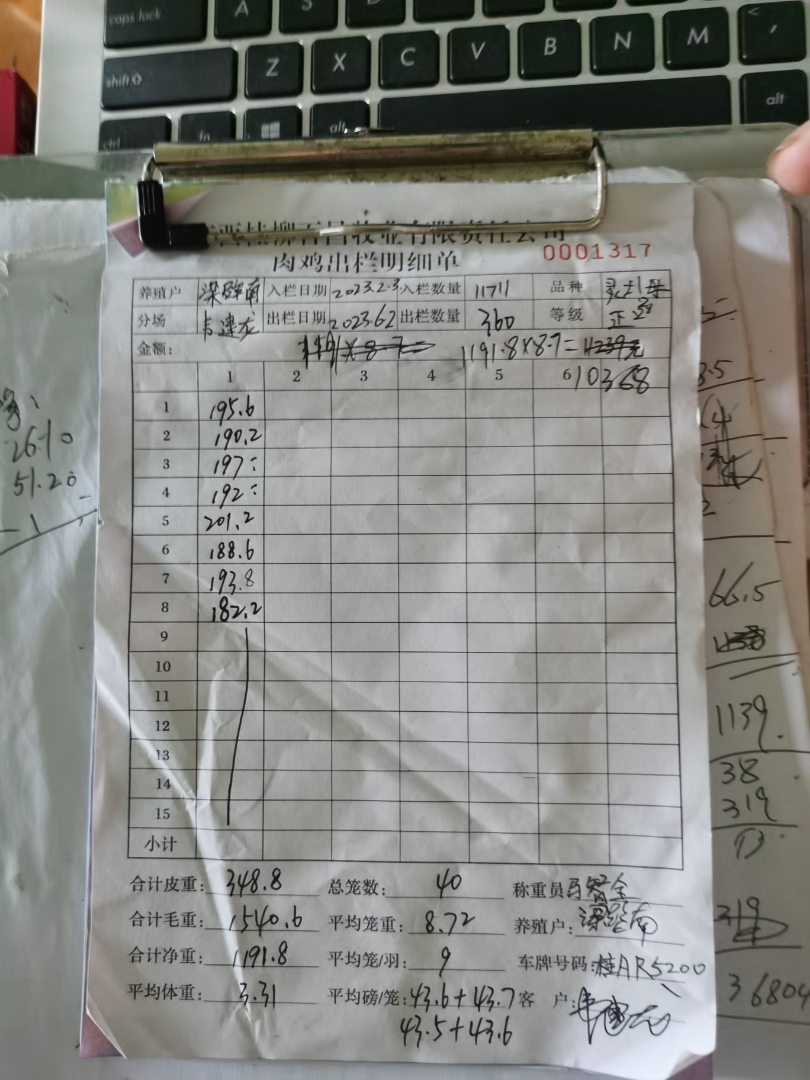 caps lock A S D
shift Z X C V B N M < ,
ctrl fn alt alt
牧业有限责任公司
肉鸡出栏明细单 0001317
养殖户 入栏日期 2023.2.3 入栏数量 11711 品种
分场 韦建龙 出栏日期 2023.6.2 出栏数量 360 等级 正
金额: 1191.8×8.7=
1 2 3 4 5 6 10368
1 195.6
2 190.2
3 197:
4 192:
5 201.2
6 188.6
7 193.8
8 182.2
9
10
11
12
13
14
15
小计
合计皮重: 348.8 总笼数: 40 称重员
合计毛重: 1540.6 平均笼重: 8.72 养殖户:
合计净重: 1191.8 平均笼/羽: 9 车牌号码: 桂AR5200
平均体重: 3.31 平均磅/笼: 43.6+43.7 客户:
43.5+43.6
26.10
51.20
66.5
1139.
38
319
319
36804